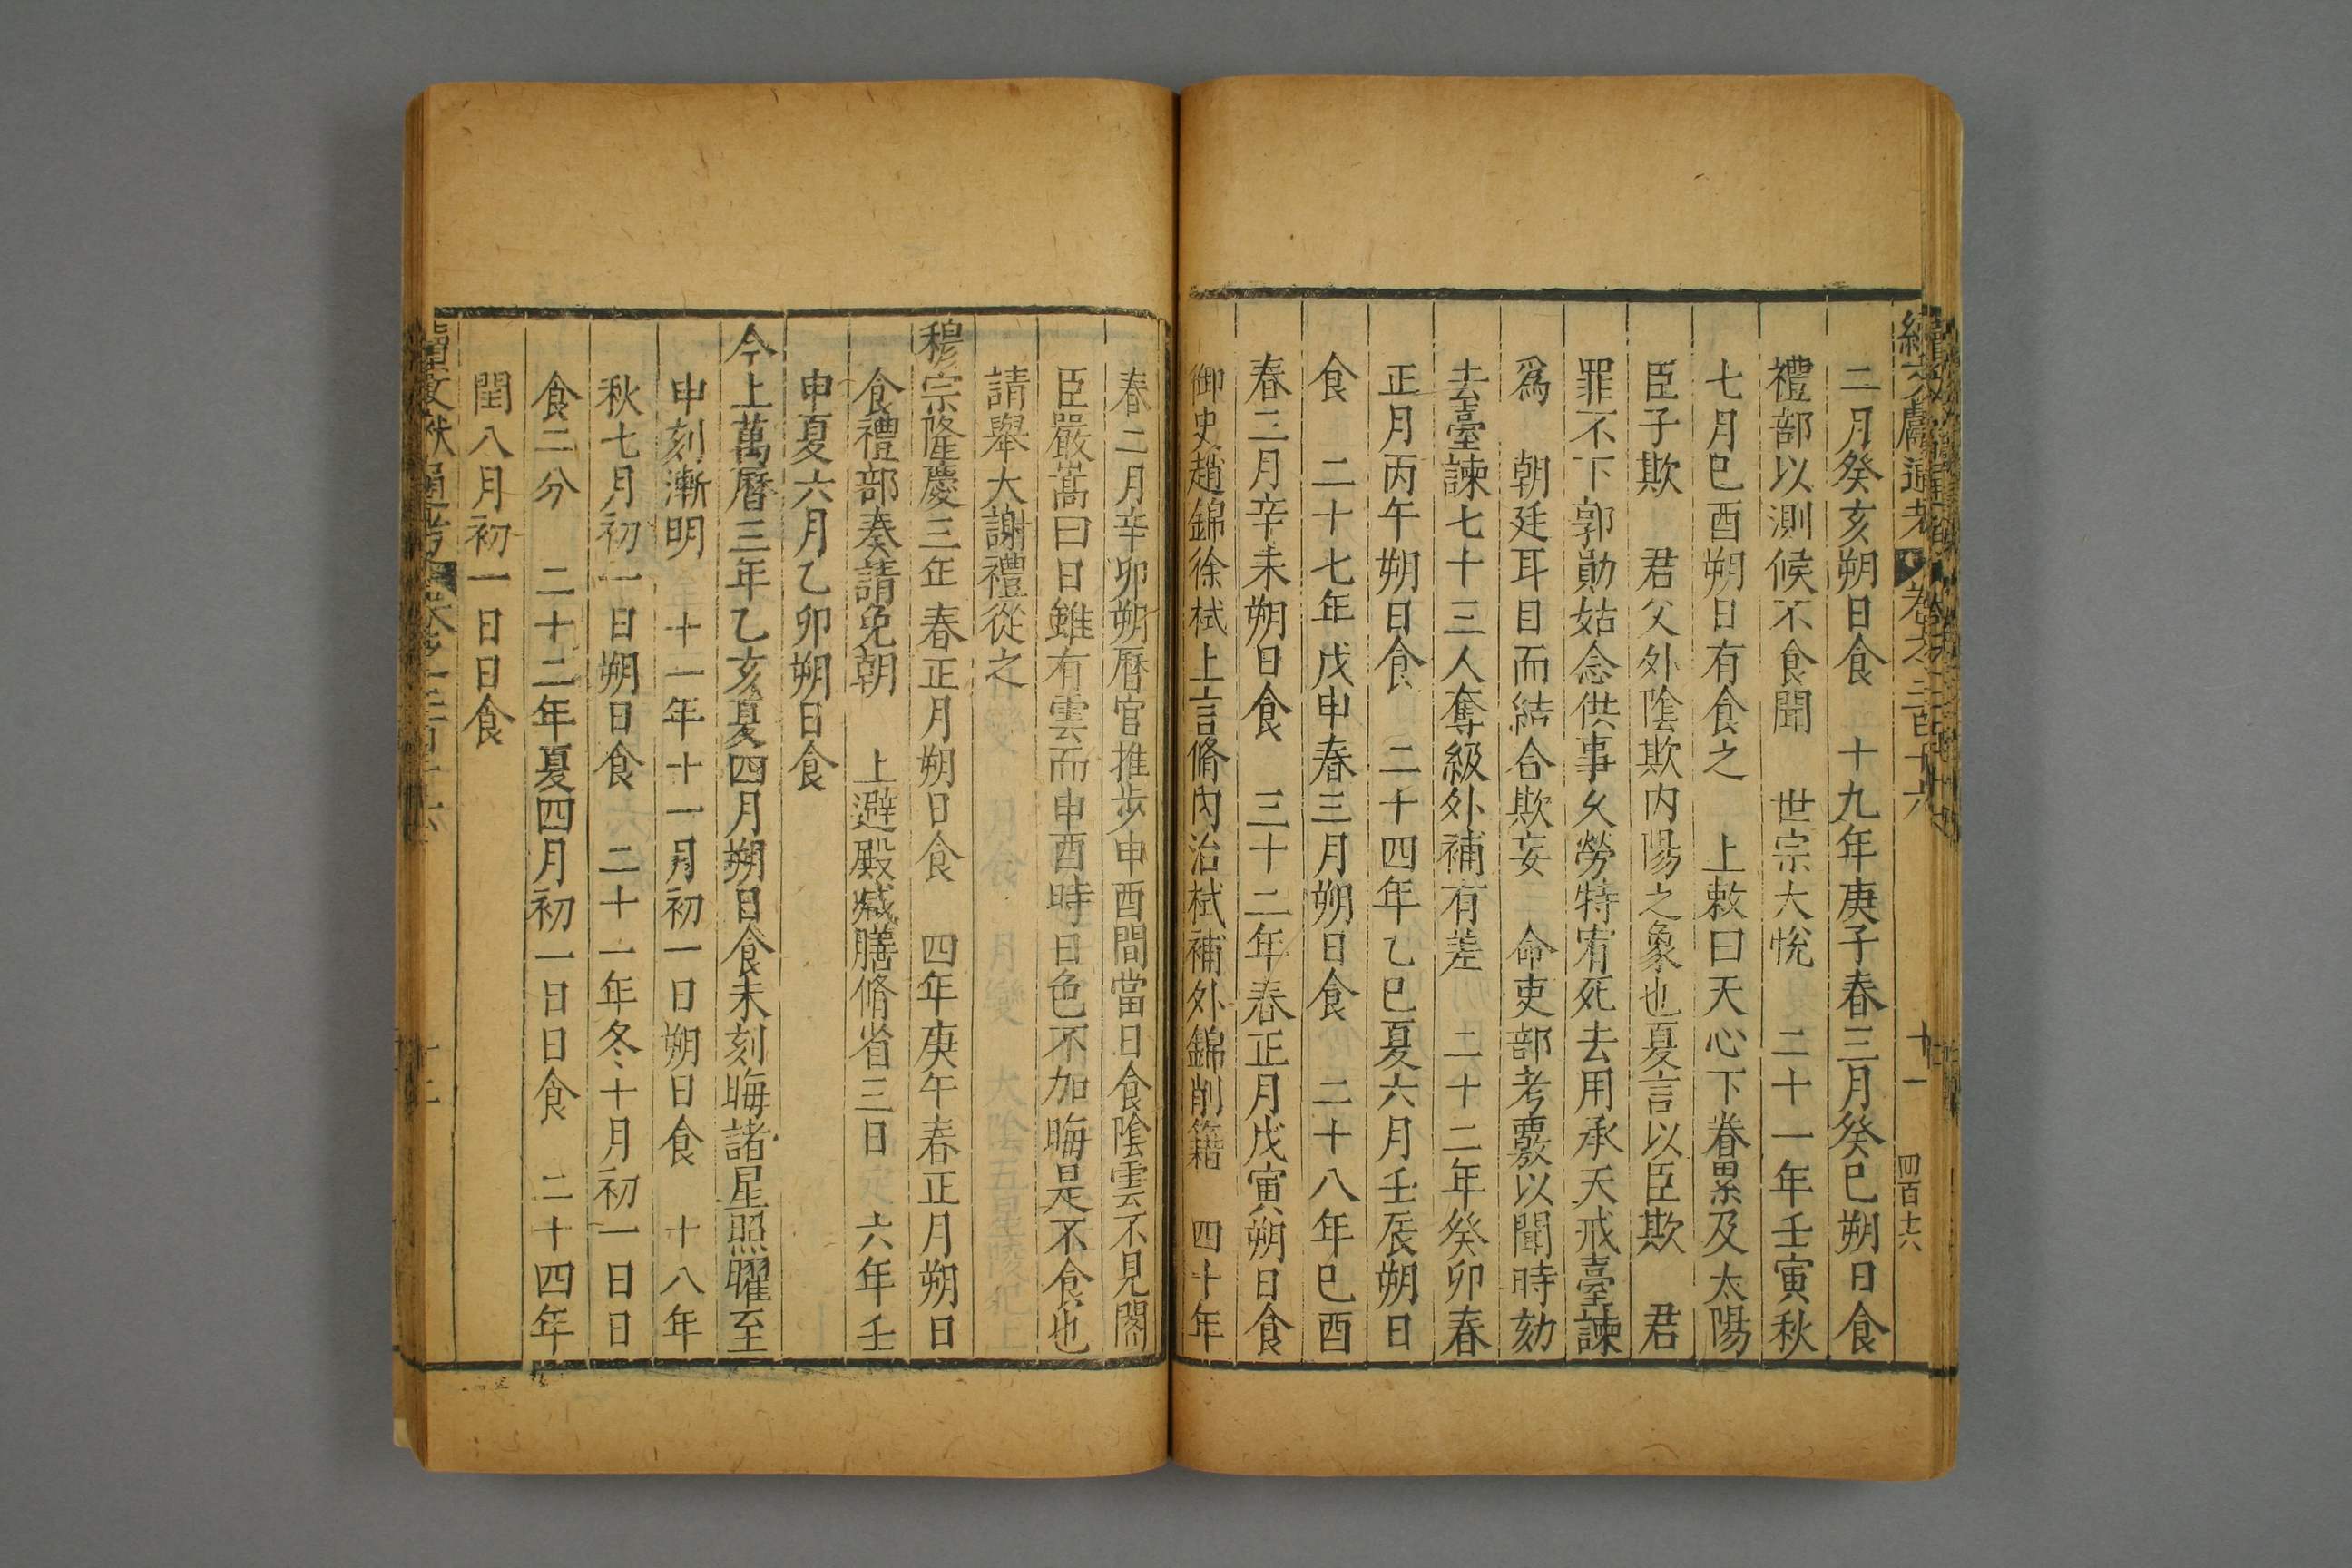 續文獻通考 卷之二百十六 十一 四百十六
二月癸亥朔日食 十九年庚子春三月癸巳朔日食
禮部以測候不食聞 世宗大悅 二十一年壬寅秋
七月巳酉朔日有食之 上敕曰天心下眷累及太陽
臣子欺 君父外陰欺内陽之象也夏言以臣欺 君
罪不下郭勛姑念供事久勞特宥死去用承天戒臺諫
爲 朝廷耳目而結合欺妄 命吏部考覈以聞時劾
去臺諫七十三人奪級外補有差 二十二年癸卯春
正月丙午朔日食 二十四年乙巳夏六月壬辰朔日
食 二十七年戊申春三月朔日食 二十八年巳酉
春三月辛未朔日食 三十二年春正月戊寅朔日食
御史趙錦徐栻上言脩内治栻補外錦削籍 四十年
春二月辛卯朔曆官推步申酉間當日食陰雲不見閣
臣嚴嵩曰日雖有雲而申酉時日色不加晦是不食也
請舉大謝禮從之
穆宗隆慶三年春正月朔日食 四年庚午春正月朔日
食禮部奏請免朝 上避殿減膳脩省三日 六年壬
申夏六月乙卯朔日食
今上萬曆三年乙亥夏四月朔日食未刻晦諸星照曜至
申刻漸明 十一年十一月初一日朔日食 十八年
秋七月初一日朔日食 二十一年冬十月初一日日
食二分 二十二年夏四月初一日日食 二十四年
閏八月初一日日食
續文獻通考 卷之二百十六